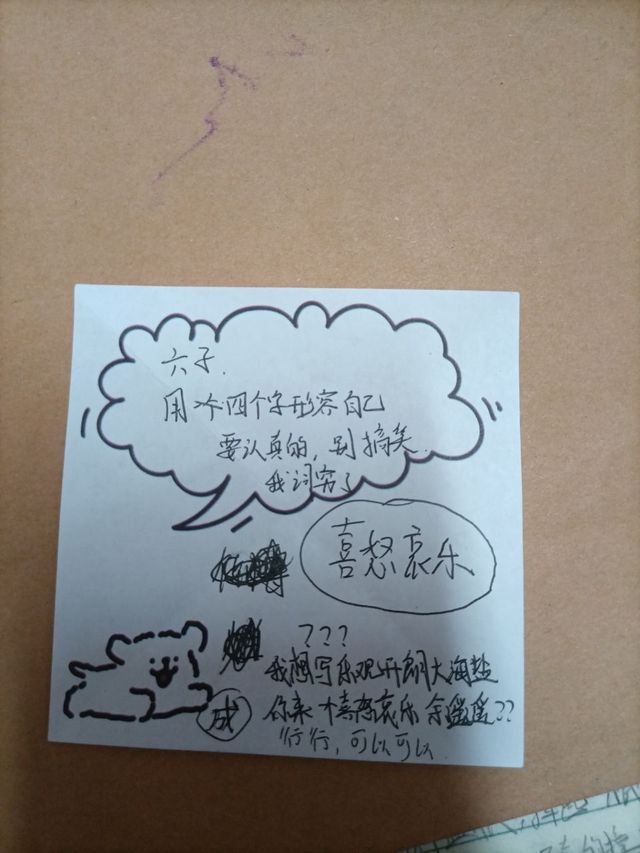 六子.
用个四个字形容自己
要认真的,别搞笑.
我词穷了
喜怒哀乐
???
我想写乐观开朗大海盐
你来个喜怒哀乐 余遥遥??
成
行行,可以可以.